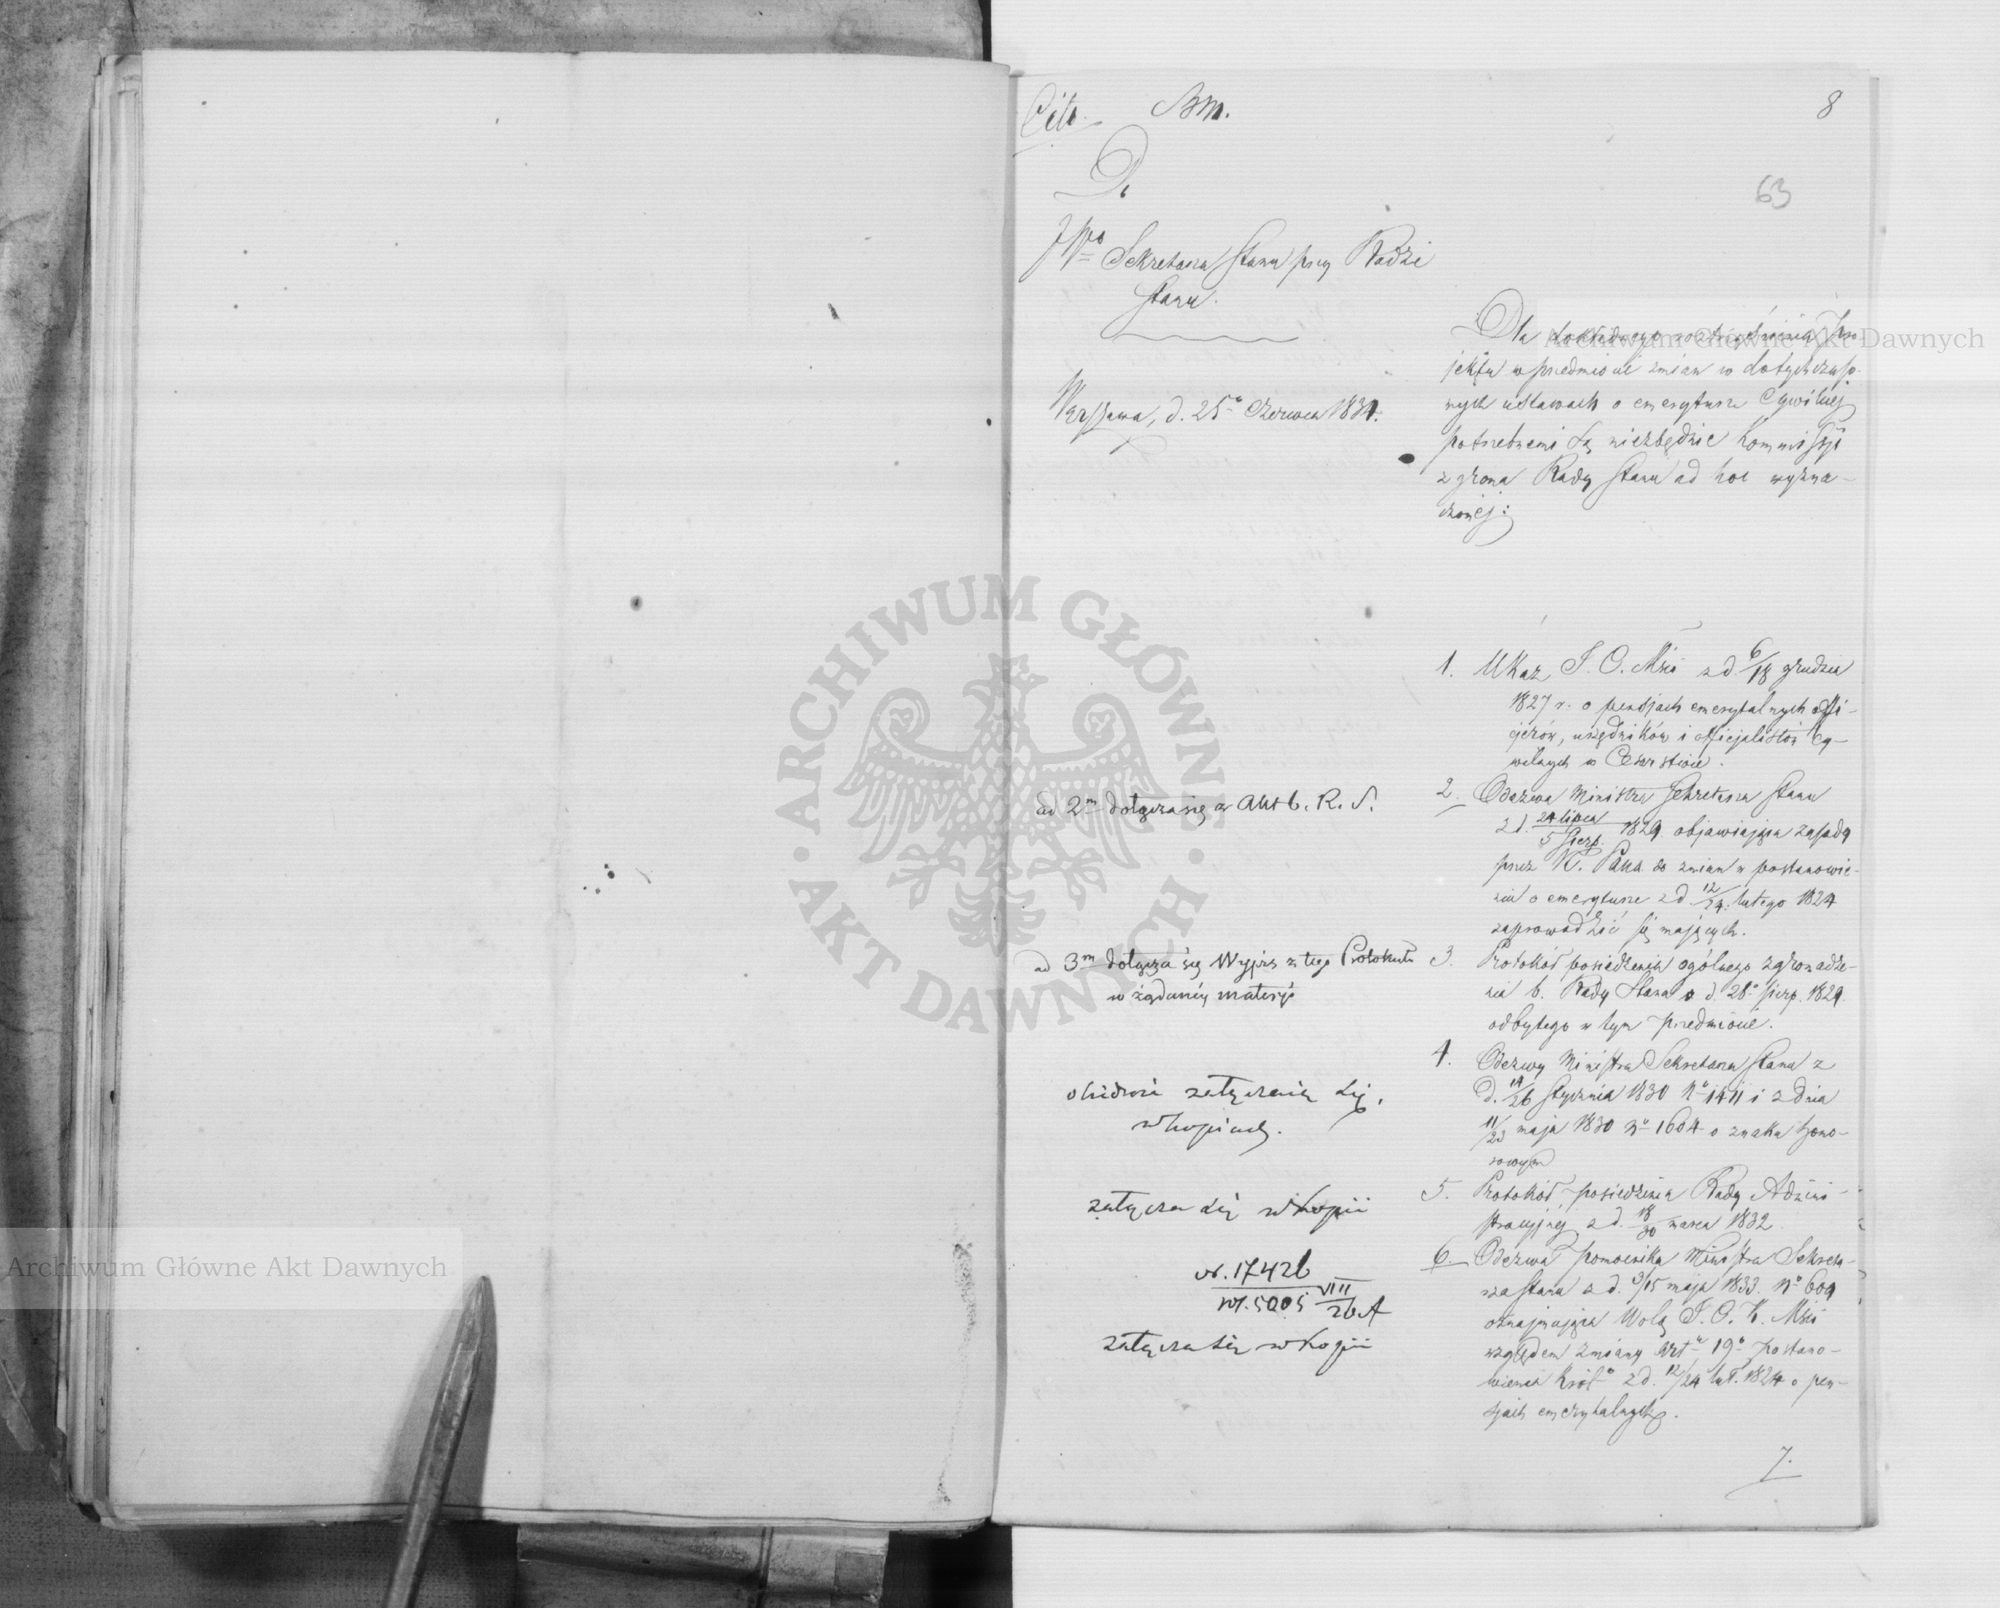 Cito.
8
63
D.
JWo Sekretarza Stanu przy Radzie
Stanu.
Warszawa, d. 25o Czerwca 1834.
Dla dokładnego roztrząśnienia Pro-
jektu w przedmiocie zmian w dotychczaso-
wych ustawach o emeryturze Cywilnej
potrzebnemi są niezbędnie Kommissji
z grona Rady Stanu ad hoc wyzna-
czonej:
1. Ukaz J. C. Mści z d. 6/18 grudnia
1827 r. o pensjach emerytalnych offi-
cjerów, urzędników i officjalistów Cy-
wilnych w Cesarstwie.
ad 2m dołącza się z Akt b. R. S.
2. Odezwa Ministra Sekretarza Stanu
z d. 24 lipca / 5 Sierp. 1829 objawiająca zasady
przez N. Pana do zmian w postanowie-
niu o emeryturze z d. 12/24 lutego 1824
zaprowadzić się mających.
ad 3m dołącza się Wypis z tego Protokułu
w żądanej materji
3. Protokół posiedzenia ogólnego zgromadze-
nia b. Rady Stanu d. 28o sierp. 1829
odbytego w tym przedmiocie.
obiedwie załączają się
w kopiach.
4. Odezwy Ministra Sekretarza Stanu z
d. 14/26 Stycznia 1830 No 1411 i z dnia
11/23 maja 1830 No 1604 o znaku hono-
rowym
załącza się w kopii
5. Protokół posiedzenia Rady Admini-
stracyjnej z d. 18/30 marca 1832.
Nr. 17426
Nr. 5005 VIII/26 A
załącza się w kopii
6. Odezwa pomocnika Ministra Sekreta-
rza Stanu z d. 3/15 maja 1833. No 609
oznajmująca Wolą J. C. K. Mści
względem zmiany Artu 19o postano-
wienia Królo z d. 12/24 lut. 1824 o pen-
sjach emerytalnych.
7.
Archiwum Główne Akt Dawnych
Archiwum Główne Akt Dawnych
ARCHIWUM GŁÓWNE · AKT DAWNYCH ·